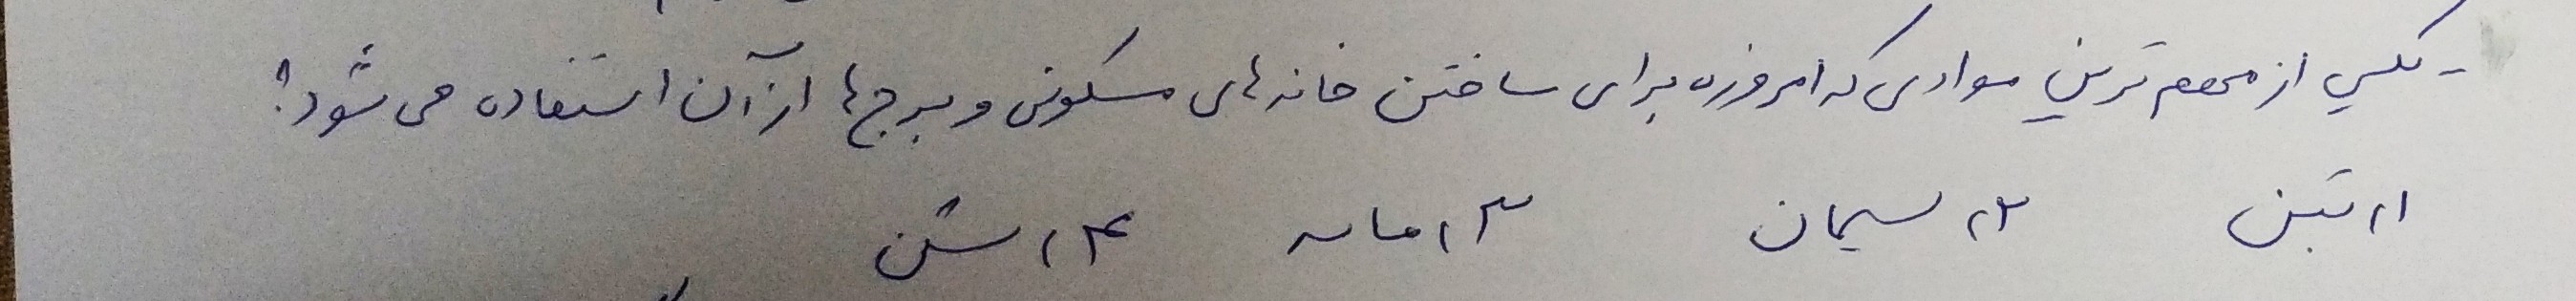 - یکی از مهم ترین موادی که امروزه برای ساختن خانه های مسکونی و برج ها از آن استفاده می شود؟
۱) بتن ۲) سیمان ۳) ماسه ۴) شن